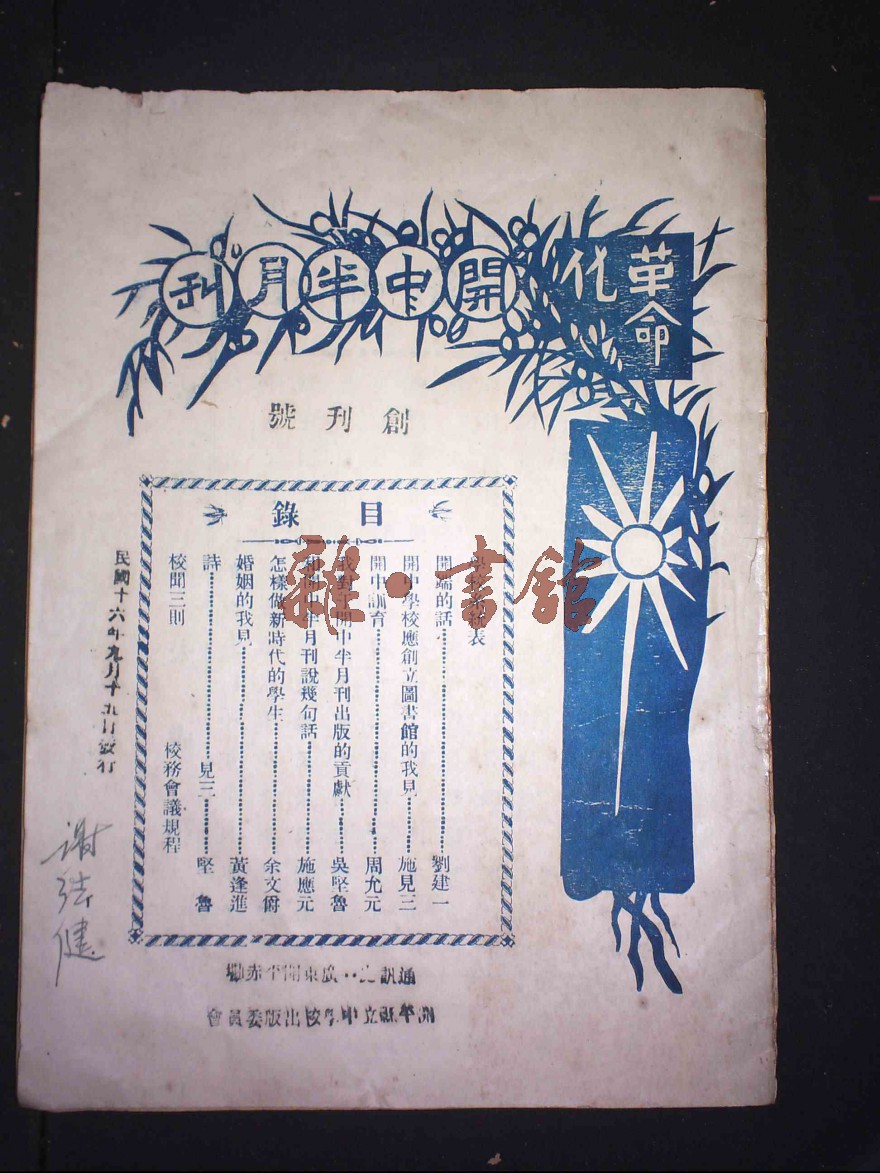 革命化
開中半月刋
創刊號
目錄
表
開端的話…………劉建一
開中學校應創立圖書館的我見…………施見三
開中訓育…………周允元
我對于開中半月刊出版的貢獻…………吳堅魯
和開中半月刊說幾句話…………施應元
怎樣做新時代的學生…………余文爵
婚姻的我見…………黃逢進
詩…………見三…………堅魯
校聞三則 校務會議規程
民國十六年九月十五日發行
通訊處：廣東開平赤
開平縣立中學校出版委員會
雜·書館